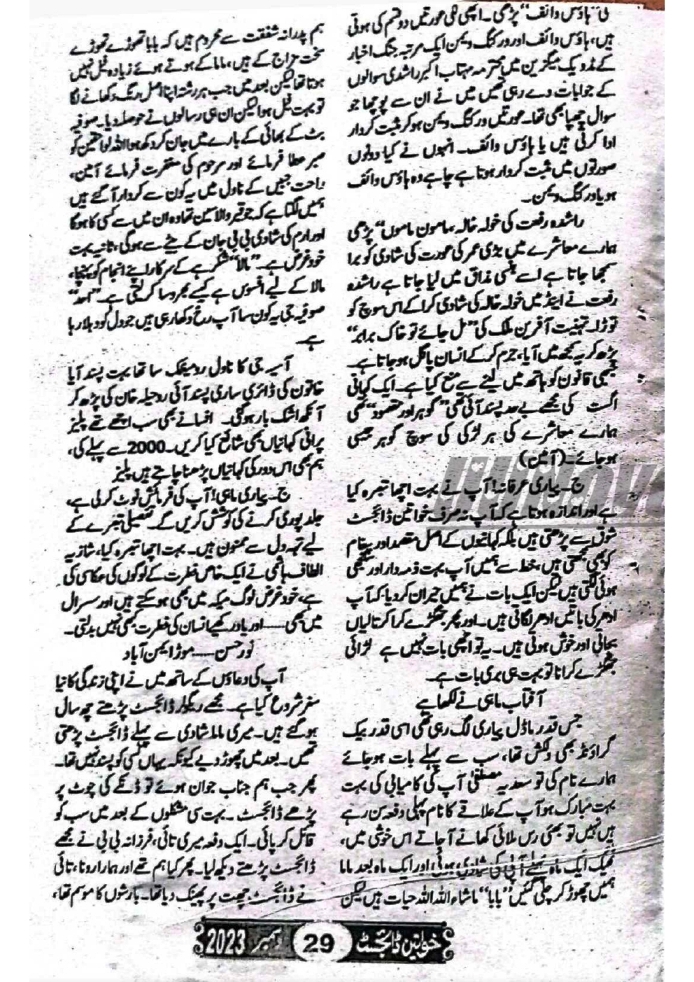 لی ہاؤس وائف“ پڑھی۔ اچھی لگی عورتیں دو قسم کی ہوتی
ہیں، ہاؤس وائف اور ورکنگ ویمن ایک مرتبہ جنگ اخبار
کے مڈ ویک میگزین میں محترمہ مہتاب اکبر راشدی سوالوں
کے جوابات دے رہی تھیں میں نے ان سے پوچھا جو
سوال چھپا بھی تھا۔ عورتیں ورکنگ ویمن ہو کر مثبت کردار
ادا کرتی ہیں یا ہاؤس وائف۔ انہوں نے کہا دونوں
صورتوں میں مثبت کردار ہوتا ہے چاہے وہ ہاؤس وائف
ہو یا ورکنگ ویمن۔
راشدہ رفعت کی خولہ خالہ سامون ماموں“ پڑھی
ہمارے معاشرے میں بڑی عمر کی عورت کی شادی کو برا
سمجھا جاتا ہے اسے ہنسی مذاق میں لیا جاتا ہے راشدہ
رفعت نے اینڈ میں خولہ خالہ کی شادی کرا کے اس سوچ کو
توڑا۔ تہنیت آفرین ملک کی ”مل جائے تو خاک برابر“
پڑھ کر یہ سمجھ میں آیا، جرم کر کے انسان پاگل ہو جاتا ہے۔
جبھی قانون کو ہاتھ میں لینے سے منع کیا ہے۔ ایک کہانی
اگست کی مجھے بے حد پسند آئی تھی ”گوہر اور مقصود“ تھی
ہمارے معاشرے کی ہر لڑکی کی سوچ گوہر جیسی
ہو جائے۔ (آمین)
ج۔ پیاری عرفانہ! آپ نے بہت اچھا تبصرہ کیا
ہے اور اندازہ ہوتا ہے کہ آپ نہ صرف خواتین ڈائجسٹ
شوق سے پڑھتی ہیں بلکہ کہانیوں کے اصل مقصد اور پیغام
کو بھی سمجھتی ہیں، خط سے ہمیں آپ بہت ذمہ دار اور سلجھی
ہوئی لگتی ہیں لیکن ایک بات نے ہمیں حیران کر دیا کہ آپ
ادھر کی باتیں ادھر لگاتی ہیں۔ اور پھر جھگڑے کرا کر تالیاں
بجاتی اور خوش ہوتی ہیں۔ یہ تو اچھی بات نہیں ہے لڑائی
جھگڑے کرانا تو بہت ہی بری بات ہے۔
آفتاب ماہی نے لکھا ہے
جس قدر ماڈل پیاری لگ رہی تھی اسی قدر بیک
گراؤنڈ بھی دلکش تھا، سب سے پہلے بات ہو جائے
ہمارے نام کی تو سعدیہ مصطفیٰ آپ کی کامیابی کی بہت
بہت مبارک ہو آپ کے علاقے کا نام پہلی دفعہ سن رہے
ہیں نہیں تو بھئی رس ملائی کھانے آ جاتے اس خوشی میں،
ٹھیک ایک ماہ پہلے آپی کی شادی ہوئی، اور ایک ماہ بعد ماما
ہمیں چھوڑ کر چلی گئیں ”بابا“ ماشاء اللہ اللہ حیات ہیں لیکن
ہم پدرانہ شفقت سے محروم ہیں کہ بابا تھوڑے تھوڑے
سخت مزاج کے ہیں، ماما کے ہوتے ہوئے زیادہ فیل نہیں
ہوتا تھا لیکن بعد میں جب ہر رشتہ اپنا اصل رنگ دکھانے لگا
تو بہت فیل ہوا لیکن ان ہی رسالوں نے حوصلہ دیا۔ صوفیہ
بٹ کے بھائی کے بارے میں جان کر دکھ ہوا اللہ لواحقین کو
صبر عطا فرمائے اور مرحوم کی مغفرت فرمائے آمین،
راحت جبیں کے ناول میں یہ کون سے کردار آ گئے ہیں
ہمیں لگتا ہے کہ جو قیر والا سین تھا وہ ان میں سے کسی کا ہوگا
اور ارم کی شادی بی بی جان کے بیٹے سے ہوگی، ثانیہ بہت
خود غرض ہے۔ ”مالا“ شکر ہے کے سرکار اپنے انجام کو پہنچا،
مالا کے لیے افسوس ہے کیسے بھروسا کرتی ہے۔ ”احمد“
صوفیہ جی یہ کون سا آپ رخ دکھا رہی ہیں جو دل کو دہلا رہا
ہے۔
آسیہ جی کا ناول رومینٹک سا تھا بہت پسند آیا
خاتون کی ڈائری ساری پسند آئی روحیلہ خان کی پڑھ کر
آنکھ اشک بار ہو گئی۔ افسانے بھی سب اچھے تھے پلیز
پرانی کہانیاں بھی شائع کیا کریں۔ 2000 سے پہلے کی،
ہم بھی اس دور کی کہانیاں پڑھنا چاہتے ہیں پلیز
ج۔ پیاری ماہی! آپ کی فرمائش نوٹ کر لی ہے،
جلد پوری کرنے کی کوشش کریں گے۔ تفصیلی تبصرے کے
لیے تہہ دل سے ممنون ہیں۔ بہت اچھا تبصرہ کیا، شازیہ
الطاف ہاشمی نے ایک خاص فطرت کے لوگوں کی عکاسی کی
ہے، خود غرض لوگ میکہ میں بھی ہو سکتے ہیں اور سسرال
میں بھی...... اور یاد رکھیے انسان کی فطرت کبھی نہیں بدلتی۔
نور حسن...... موڑ ایمن آباد
آپ کی دعاؤں کے ساتھ میں نے اپنی زندگی کا نیا
سفر شروع کیا ہے۔ مجھے ریگولر ڈائجسٹ پڑھتے چھ سال
ہو گئے ہیں۔ میری ماما شادی سے پہلے ڈائجسٹ پڑھتی
تھیں۔ بعد میں چھوڑ دیے کیونکہ یہاں کسی کو پسند نہیں تھا۔
پھر جب ہم جناب جوان ہوئے تو ڈنکے کی چوٹ پر
پڑھے ڈائجسٹ۔ بہت سی مشکلوں کے بعد میں سب کو
قائل کر پائی۔ ایک دفعہ میری تائی، فرزانہ بی بی نے مجھے
ڈائجسٹ پڑھتے دیکھ لیا۔ پھر کیا ہم تھے اور ہمارا رونا، تائی
نے ڈائجسٹ چھت پر پھینک دیا تھا۔ بارشوں کا موسم تھا،
خواتین ڈائجسٹ 29 دسمبر 2023